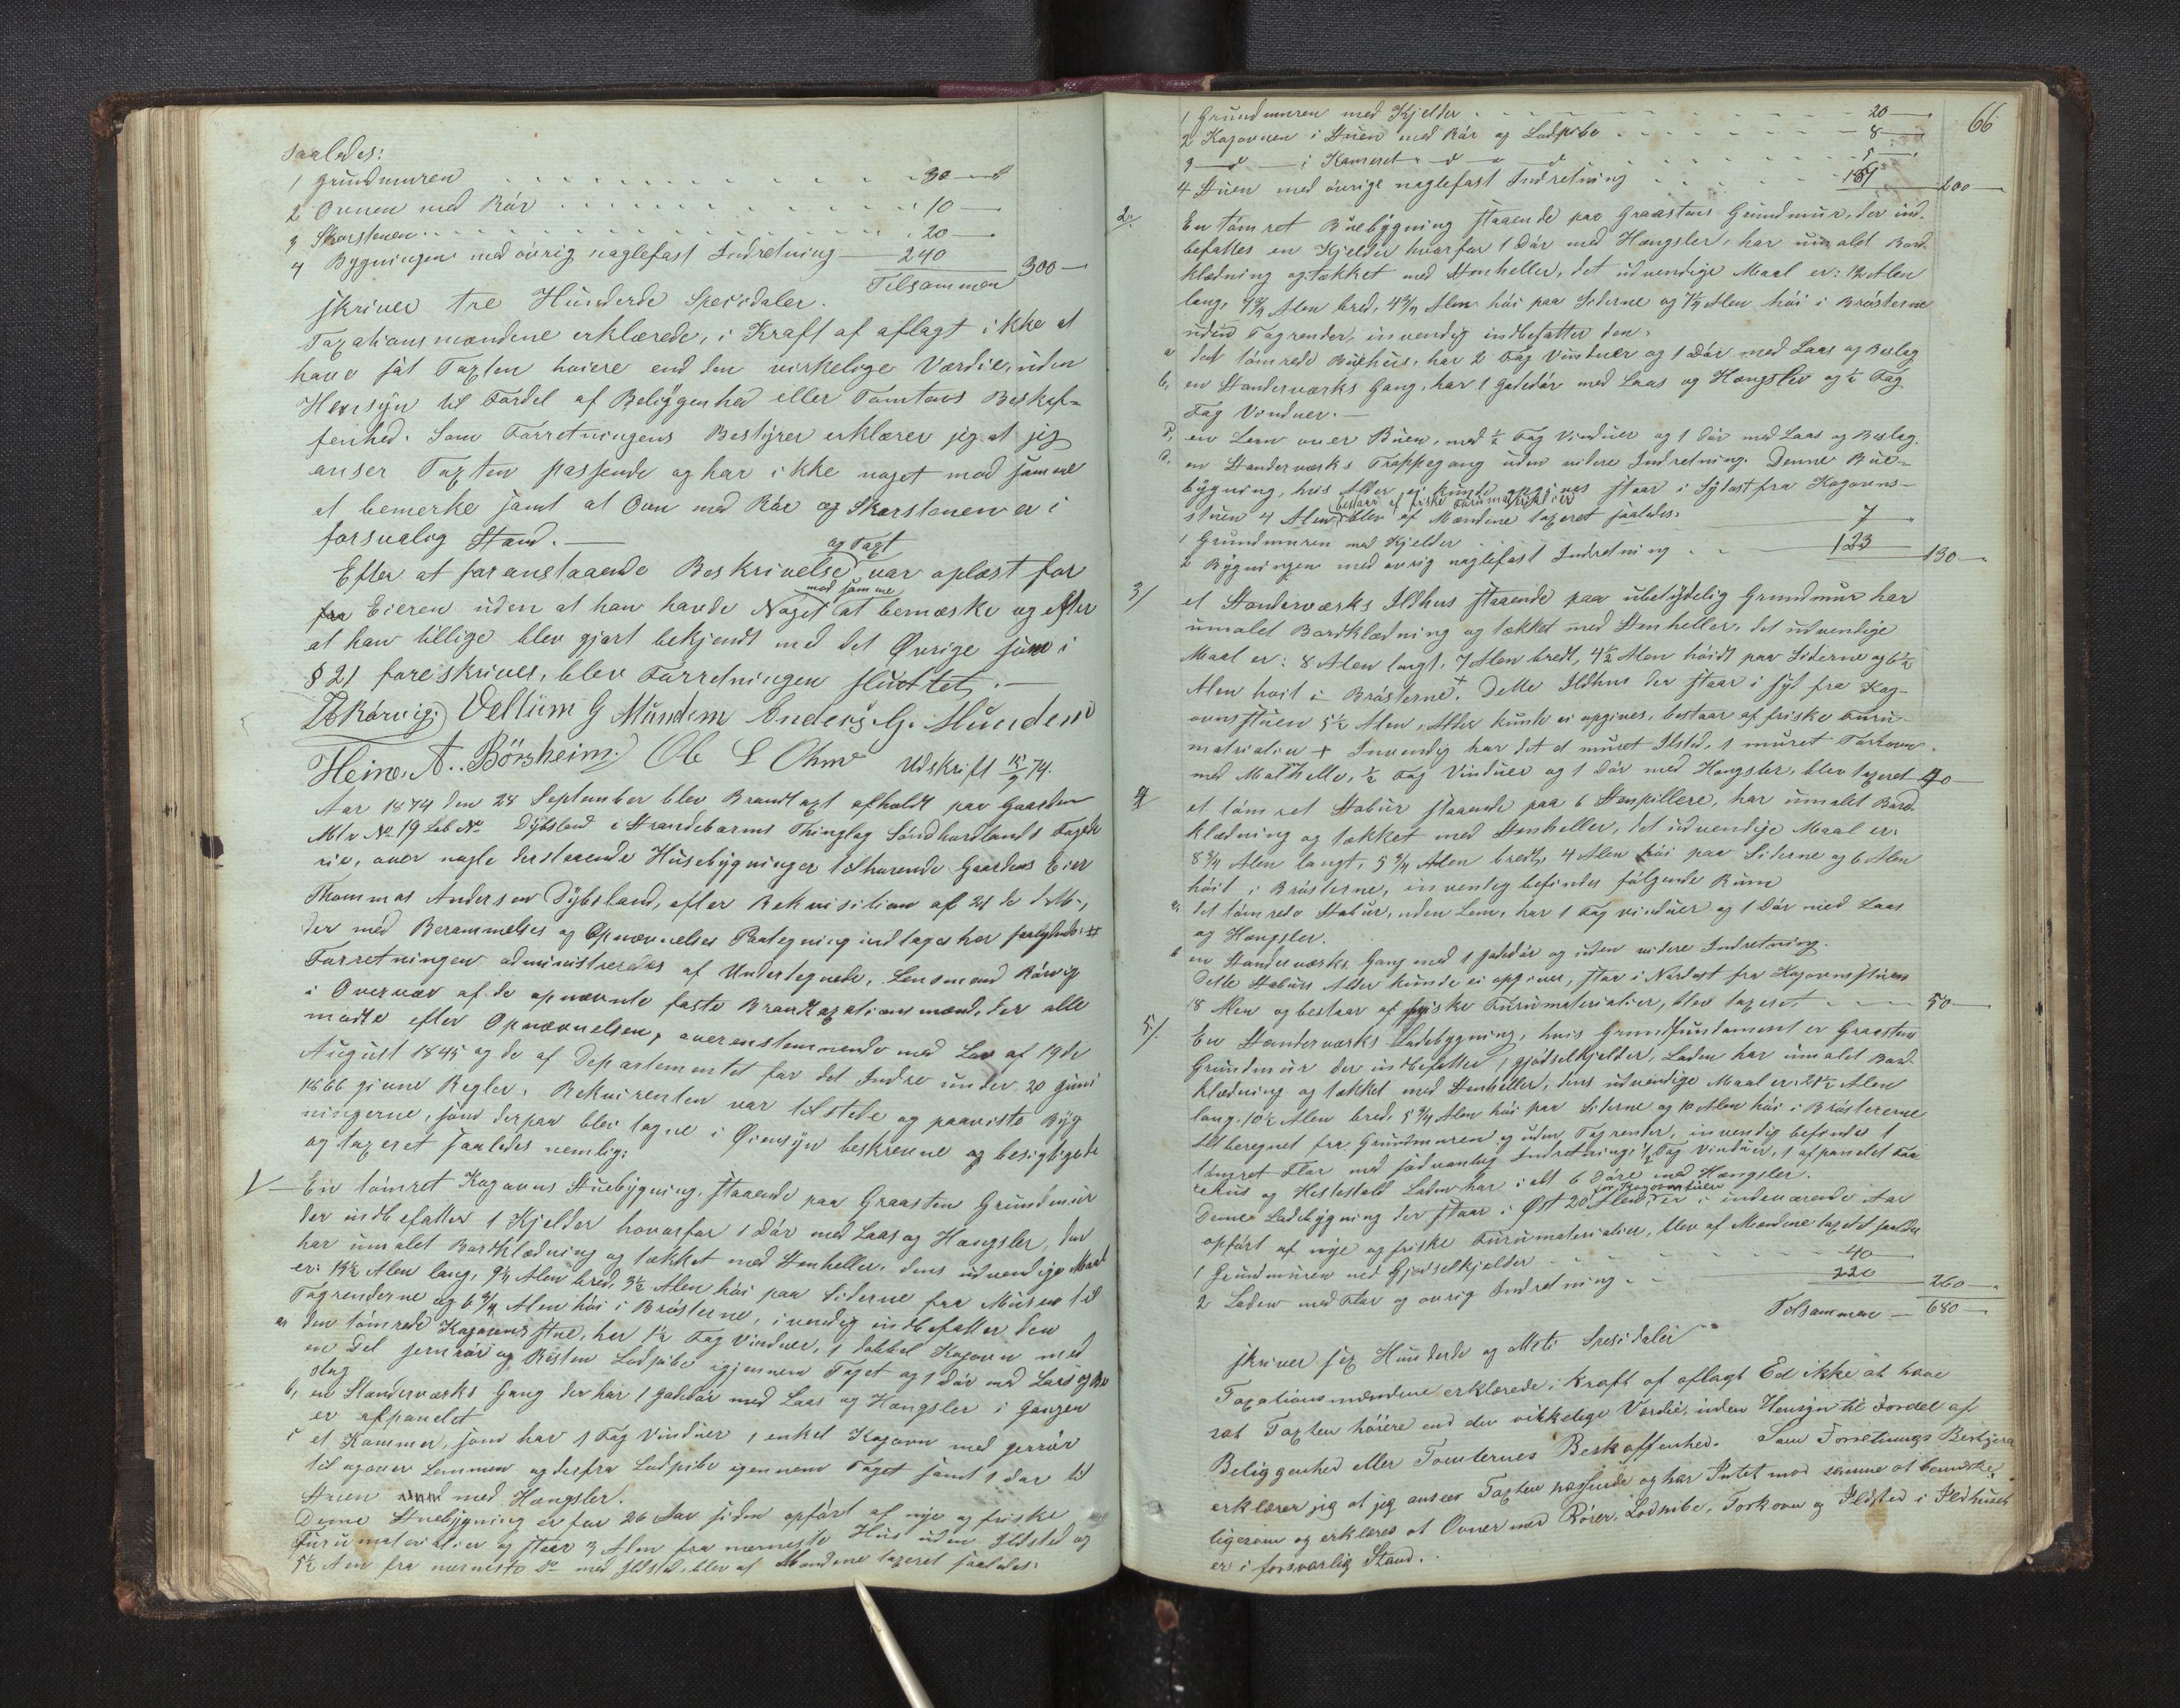 Saaledes:
1 Grundmuren . . . . . . . . . 30 —
2 Ovnen med Rör . . . . . . . . . 10 —
3 Skorstenen . . . . . . . . . 20 —
4 Bygningen med övrig naglefast Indretning — 240
Tilsammen 300 —
skriver tre Hunderde Specidaler.
Taxationsmændene erklærede, i Kraft af aflagt ikke at
have sat Taxten høiere end den virkelige Værdie, uden
Hensyn til Fordel af Beliggenhed eller Tomtens Beskaf-
fenhed. Som Forretningens Bestyrer erklærer jeg at jeg
anser Taxten passende og har ikke noget mod samme
at bemerke samt at Ovn med Rör og Skorstenen er i
forsvalig Stand. —
og Taxt
Efter at foranstaaende Beskrivelse var oplæst for
mod samme
fra Eieren uden at han havde Noget at bemærke og efter
at han tillige blev gjort bekjendt med det Øvrige som i
§ 21 foreskrives, blev Forretningen sluttet. —
Rörvig. Vellum G Mundem Anders G. Munden
Heine. A. Börsheim. Ole L Ohm Udskrift 15/9 74.
Aar 1874 den 28 September blev Brandtaxt afholdt paa Gaarden
Mtr No 19 Lob No Dybsland i Strandebarms Thinglag Söndhordlands Fogde
rie, over nogle derstaaende Husebygninger tilhørende Gaardens Eier
Thommas Andersen Dybsland, efter Rekvisition af 21 de ds Mts,
der med Berammelses og Opnævnelses Paategning indtages her saalydende: #
Forretningen administreredes af Undertegnede, Lensmand Rörvig
i Overvær af de opnævnte faste Brandtaxationsmænd, der alle
mødte efter Opnævnelsen, overenstemmende med Lov af 19de
August 1845 og de af Departementet for det Indre under 20 Juni
1866 givne Regler. Rekvirenten var tilstede og paaviste Byg
ningerne, som derpaa blev tagne i Øiensyn beskrevne og besigtigede
og taxeret saaledes nemlig:
1/ — En tömret Kogovns Stuebygning, staaende paa Graasten Grundmur
der indbefatter 1 Kjelder hvorfor 1 Dör med Laas og Hængsler, der
har umalet Bordklædning og tækket med Stenheller. dens udvendige Maal
er: 13½ Alen lang, 9¼ Alen bred, 3½ Alen höi paa Siderne fra Muren til
Tagrenderne og 6¾ Alen höi i Brösterne, invendig indbefatter den
a, den tömrede Kogovns stue, har 1½ Fag Vinduer, 1 dobbel Kogovn med
en Del jernrör og Resten Lodpibe igjennem Taget og 1 Dör med Laas og Be
slag
b, en Standerværks Gang der har 1 Gadedör med Laas og Hængsler i Gangen
er afpanelet
c et Kammer, som har 1 Fag Vinduer 1 enkel Kogovn med jernrör
til ogover Lemmen og derfra Lodpibe igennem Taget samt 1 dør til
Stuen med Hængsler.
Denne Stuebygning er for 26 Aar siden opfört af nye og friske
Furumaterialier og staar 3 Alen fra nærmeste Hus uden Ildsted og
5½ Alen fra nærmeste Do med Ildsted, blev af Mændene taxeret saaledes:
66
1 Grundmuren med Kjelder . . . . . . . . . 20 —
2 Kogovnen i Stuen med Rör og Lodpibe . . . . . . . . — 8 —
3 —d— i Kameret —d— —d— . . . . . . — 5 —
4 Stuen med övrige naglefast Indretning . . . . . . 167 — 200 —
2: En tömret Buebygning staaende paa Graastens Grundmur, der ind-
befattes en Kjelder hvorfor 1 Dör med Hængsler, har umalet Bord-
klædning og tækket med Stenheller, det udvendige Maal er: 12 Alen
lang, 7¾ Alen bred, 4¾ Alen höi paa Siderne og 7½ Alen höi i Brösterne
uden Tagrender, invendig indbefatter den:
a det tömrede Buehus, har 2 Fag Vinduer og 1 Dör med Laas og Beslag
b, en Standerværks Gang, har 1 Gadedör med Laas og Hængsler og ½ Fag
Fag Vinduer. —
c, en Lem over Buen, med ½ Fag Vinduer og 1 Dör med Laas og Beslag.
d, en Standerværks Trappegang uden videre Indretning. Denne Bue-
bygning, hvis Alder ei kunde opgives staar i Sydost fra Kogovns-
bestaar af friske Furumaterialier
stuen 4 Alen, blev af Mændene taxeret saaledes:
1 Grundmuren med Kjelder . . . . . . 7 —
2 Bygningen med övrig naglefast Indretning . . — 123 — 130 —
3/ et Standerværks Ildhus staaende paa ubetydelig Grundmur har
umalet Bordklædning og tækket med Stenheller, det udvendige
Maal er: 8 Alen langt, 7 Alen bredt, 4½ Alen höidt paa Siderne og 6½
Alen höit i Brösterne. + Dette Ildhus der staar i Syd fra Kog-
ovnsstuen 5½ Alen, Alder kunde ei opgives, bestaar af friske Furu-
matrialier + Invendig har det et muret Ildsted, 1 muret Torkovn
med Malthelle, ½ Fag Vinduer og 1 Dör med Hængsler, blev taxeret 40 —
4/ et tömret Stabur staaende paa 6 Stenpillere, har umalet Bord-
klædning og tækket med Stenheller, det udvendige Maal er:
8¾ Alen langt, 5¾ Alen bredt, 4 Alen höi paa Siderne og 6 Alen
höit i Brösterne, invendig befindes fölgende Rum
a, det tömrede Stabur, uden Lem, har 1 Fag vinduer og 1 Dör med Laas
og Hængsler.
b en Standerværks Gang med 1 gadedör og uden videre Indretning.
Dette Staburs Alder kunde ei opgives, staar i Nordost fra Kogovnsstuen
18 Alen og bestaar af friske Furumaterialier, blev taxeret . — — 50 —
5/. En Standerværks Ladebygning, hvis Grundfundament er Graastens
Grundmur der indbefatter 1 gjödselkjelder, Laden har umalet Bord-
klædning og tækket med Stenheller, dens udvendige Maal er: 21½ Alen
lang, 10½ Alen bred, 5¾ Alen höi paa Siderne og 10 Alen höi i Brösterene
Alt beregnet fra Grundmuren og uden Tagrender, invendig befindes 1
tömret Flor med sædvanlig Indretning, ½ Fag Vinduer, 1 afpanelet Faa
rehus og Hestestald Laden har i alt 6 Döre med Hængsler.
fra Kogovnsstuen
Denne Ladebygning der staar i Øst 20 Alen, er i indeværende Aar
opfört af nye og friske Furumaterialier, blev af Mændene taxeret saaledes
1 Grundmuren med Gjødselkjelder . . . . . . 40 —
2 Laden med Flor og övrig Indretning . . 220 — 260 —
Tilsammen — 680 —
skriver sex Hunderde og otteti Spesidaler
Taxationsmændene erklærede i Kraft af aflagt Ed ikke at have
sat Taxten höiere end den virkelige Værdie, uden Hensyn til Fordel af
Beliggenhed eller Tomternes Beskaffenhed. Som Forretnings Bestyrer
erklærer jeg at jeg anseer Taxten passende og har Intet mod samme at bemærke,
ligesom og erklæres at Ovner med Rörer, Lodpibe, Torkovn og Ildsted i Ildhuset
er i forsvarlig Stand.